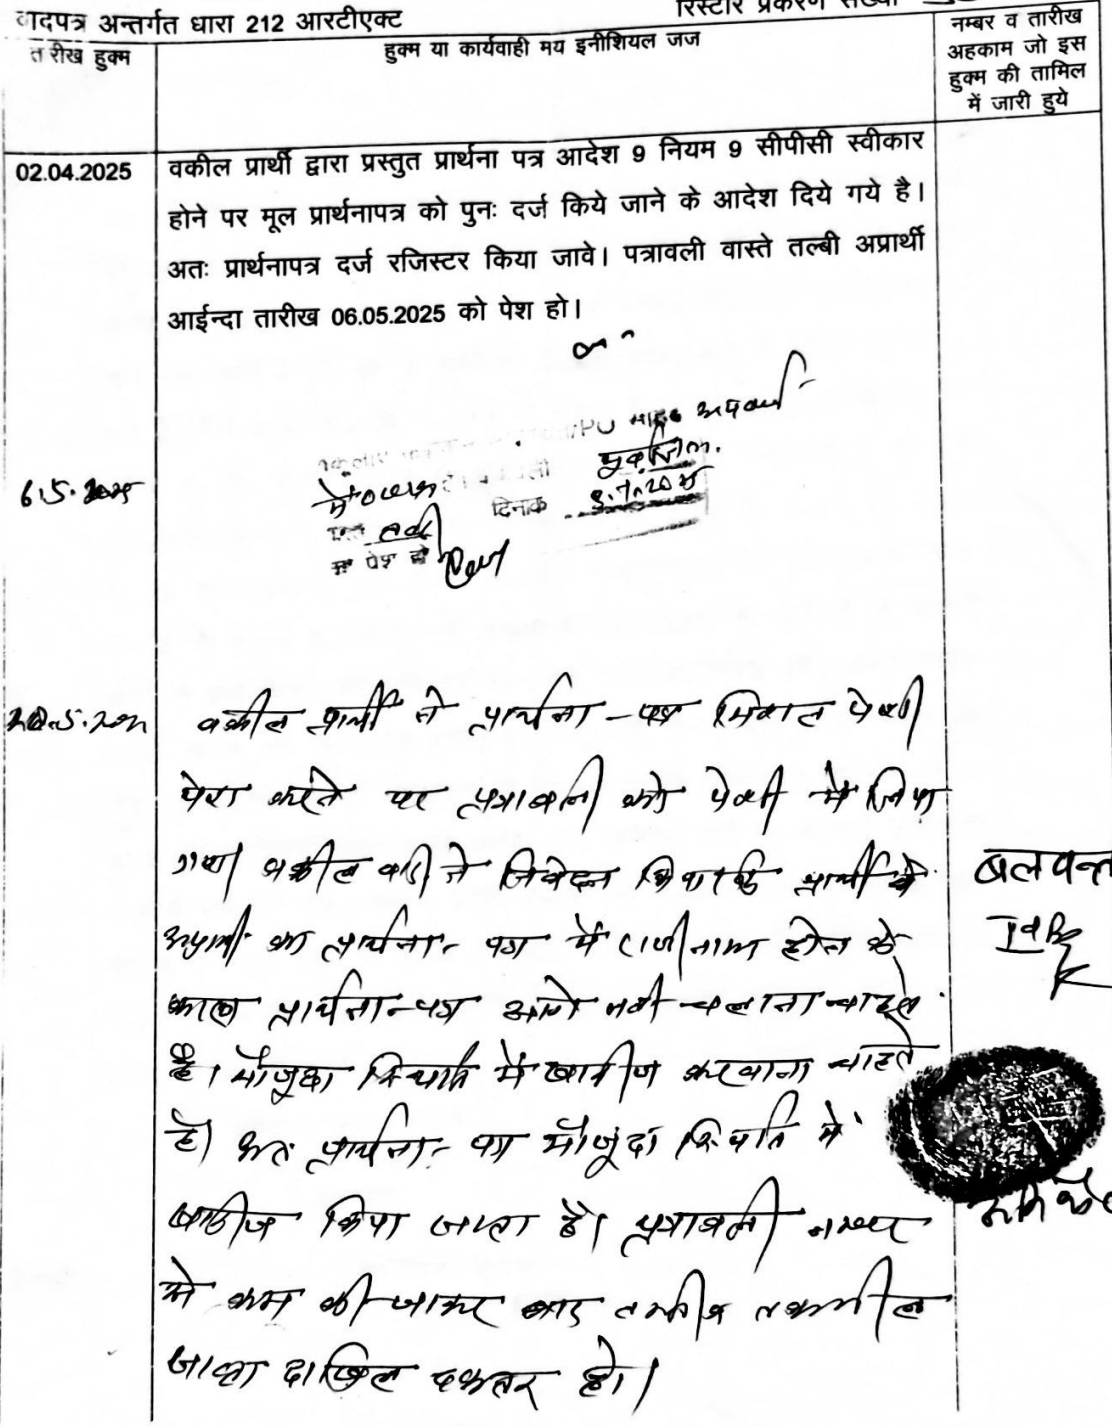 वादपत्र अन्तर्गत धारा 212 आरटीएक्ट
रिस्टोर प्रकरण संख्या
तारीख हुक्म
हुक्म या कार्यवाही मय इनीशियल जज
नम्बर व तारीख
अहकाम जो इस
हुक्म की तामिल
में जारी हुये
02.04.2025
वकील प्रार्थी द्वारा प्रस्तुत प्रार्थना पत्र आदेश 9 नियम 9 सीपीसी स्वीकार
होने पर मूल प्रार्थनापत्र को पुनः दर्ज किये जाने के आदेश दिये गये है।
अतः प्रार्थनापत्र दर्ज रजिस्टर किया जावे। पत्रावली वास्ते तल्बी अप्रार्थी
आईन्दा तारीख 06.05.2025 को पेश हो।
6.5.2025
दिनांक
पेश हो
वकील प्रार्थी ने प्रार्थना-पत्र पेशी
पेश करने पर पत्रावली को पेशी में लिया
गया वकील वादी ने निवेदन किया कि प्रार्थी व
अप्रार्थी का प्रार्थना-पत्र में राजीनामा होने के
कारण प्रार्थना-पत्र आगे नही चलाना चाहते
है। मौजुदा स्थिति में खारीज करवाना चाहते
है। अतः प्रार्थना-पत्र मौजुदा स्थिति में
खारीज किया जाता है। पत्रावली नम्बर
से कम की जाकर बाद तकमील
जाब्ता दाखिल दफ्तर हो।
बलवन्त